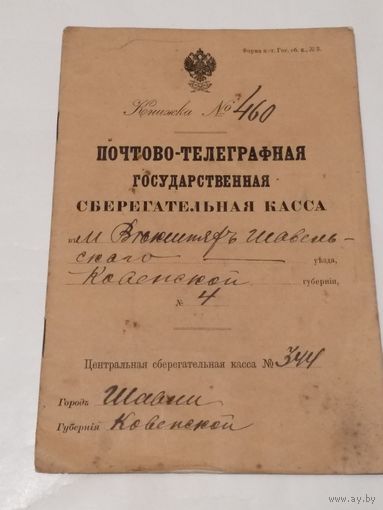 Форма п.-т. Гос. сб. к., № 9.
Книжка № 460
ПОЧТОВО-ТЕЛЕГРАФНАЯ
ГОСУДАРСТВЕННАЯ
СБЕРЕГАТЕЛЬНАЯ КАССА
въ м. Шавель-
скаго уѣзда,
Ковенской губерніи,
№ 4
Центральная сберегательная касса № 344
Городъ Шавли
Губернія Ковенской
ay.by